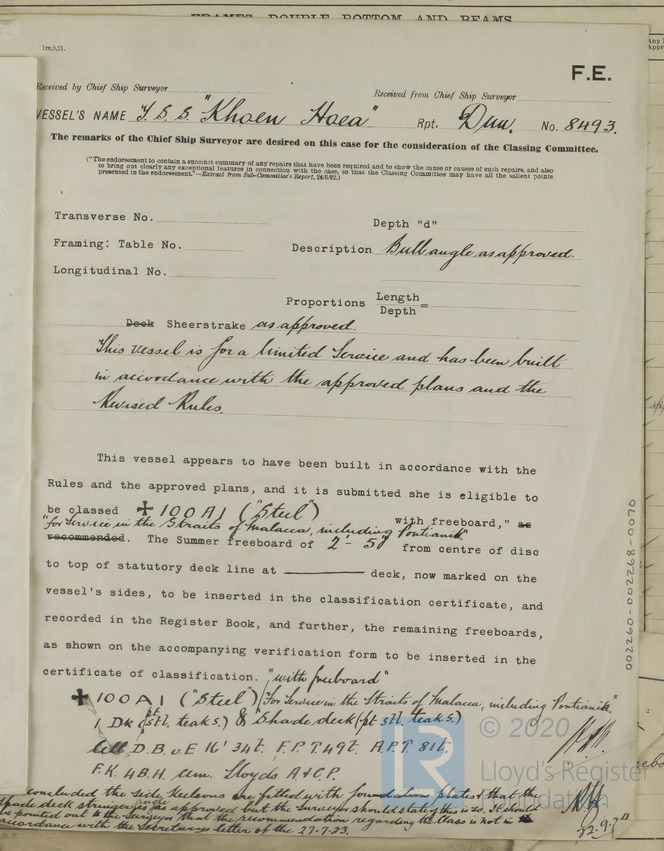 FRAMES, DOUBLE BOTTOM AND BEAMS
1m,8,21.
F.E.
Received by Chief Ship Surveyor
Received from Chief Ship Surveyor
VESSEL'S NAME T.S.S. "Khoen Hoea" Rpt. Dun. No. 8493.
The remarks of the Chief Ship Surveyor are desired on this case for the consideration of the Classing Committee.
("The endorsement to contain a succinct summary of any repairs that have been required and to show the cause or causes of such repairs, and also
to bring out clearly any exceptional features in connection with the case, so that the Classing Committee may have all the salient points
presented in the endorsement."—Extract from Sub-Committee's Report, 24/5/92.)
Transverse No.
Depth "d"
Framing: Table No.
Description Bulb angle as approved.
Longitudinal No.
Proportions Length
Depth =
Deck Sheerstrake as approved.
This vessel is for a limited Service and has been built
in accordance with the approved plans and the
Revised Rules.
This vessel appears to have been built in accordance with the
Rules and the approved plans, and it is submitted she is eligible to
be classed ✠ 100 A1 ("Steel") with freeboard," as
"for Service in the Straits of Malacca, including Pontianik"
recommended. The Summer freeboard of 2'-5" from centre of disc
to top of statutory deck line at deck, now marked on the
vessel's sides, to be inserted in the classification certificate, and
recorded in the Register Book, and further, the remaining freeboards,
as shown on the accompanying verification form to be inserted in the
certificate of classification. "with freeboard"
✠ 100 A1 ("Steel") "For Service in the Straits of Malacca, including Pontianik."
1 Dk (pt stl. teak s.) & Shade deck (pt stl. teak s.)
Cell D.B. u E 16' 34t. F.P.T. 49t. A.P.T. 81t.
F.K. 4 B.H. Cem. Lloyds A & C.P.
concluded the side keelsons are fitted with foundation plates & that the
shade deck stringer angle is as approved but the Surveyor should state this is so. It should
be pointed out to the Surveyor that the recommendation regarding the Class is not in
accordance with the Secretarys letter of the 27-7-23.
22.9.
002260-002268-0070
© 2020
LR
Lloyd's Register
Foundation